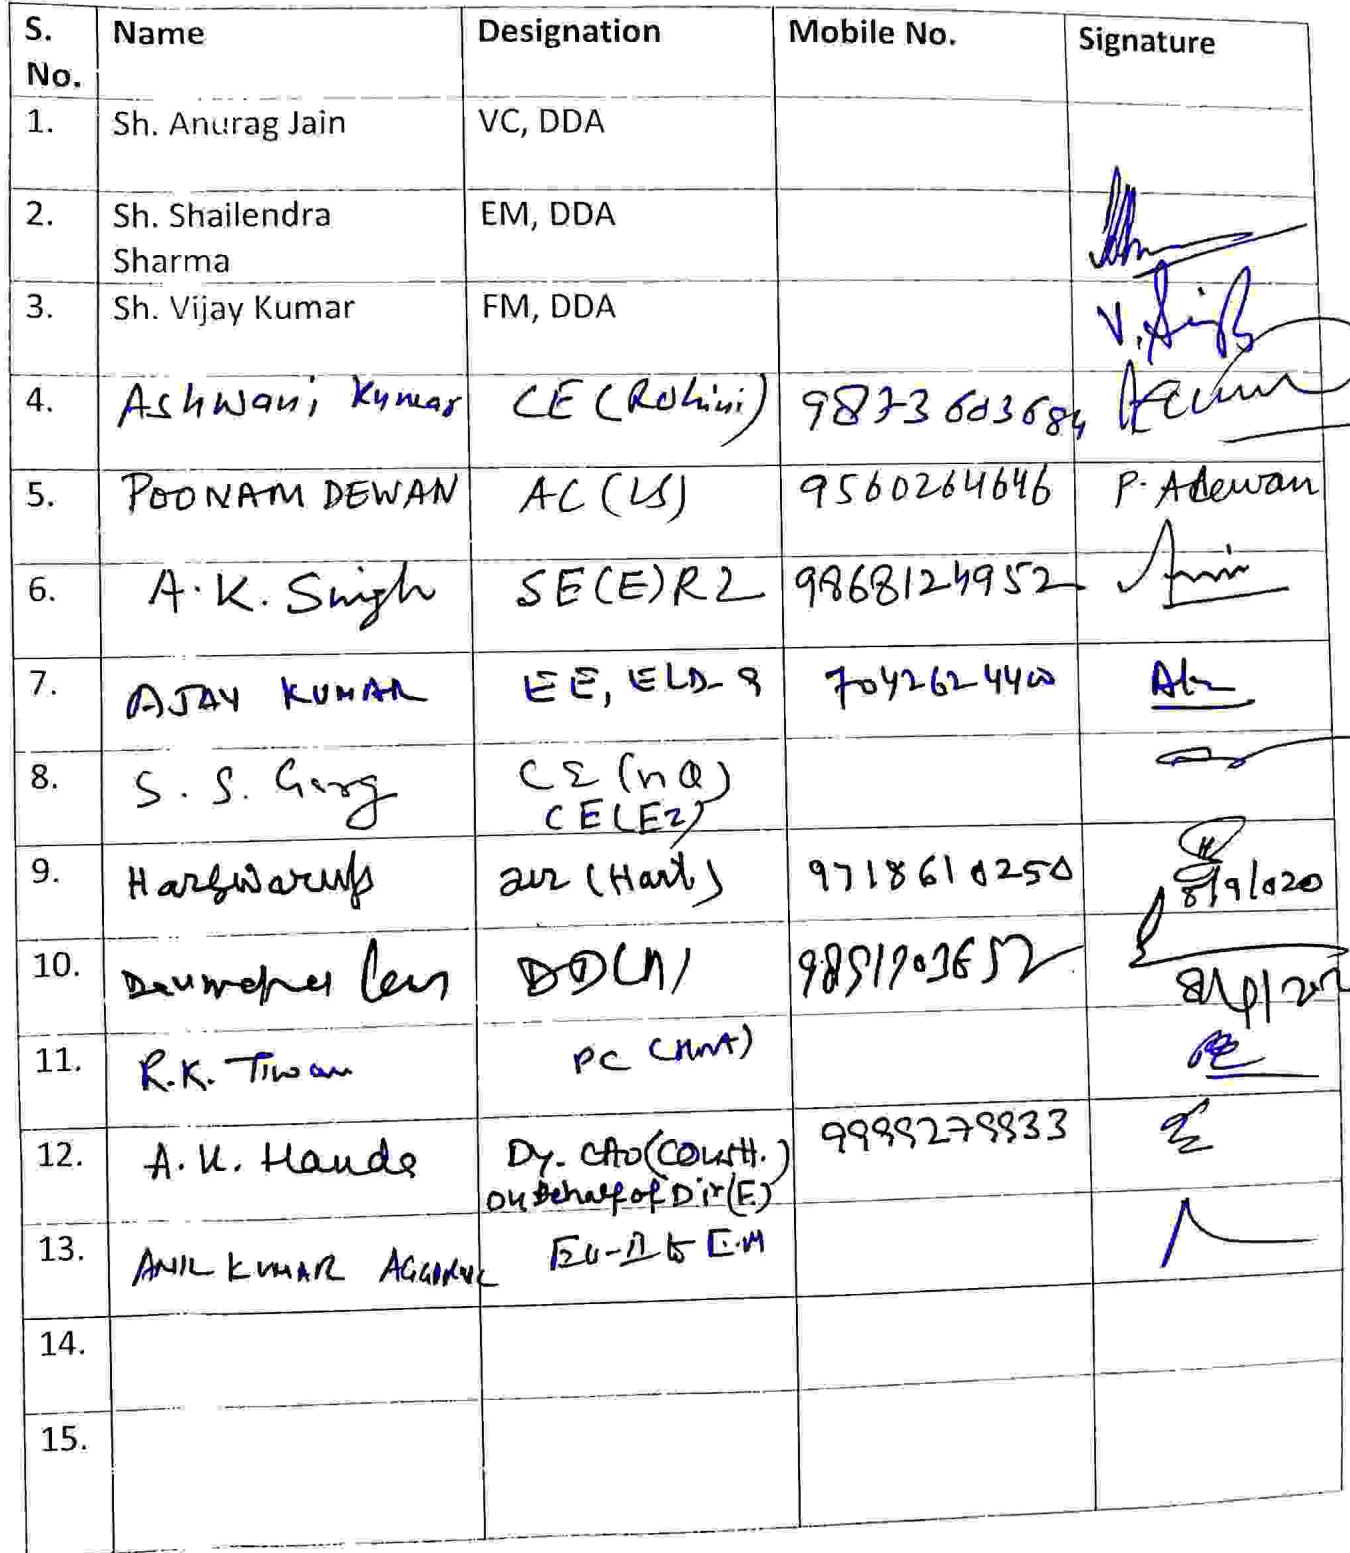 S. No. Name Designation Mobile No. Signature
1. Sh. Anurag Jain VC, DDA
2. Sh. Shailendra Sharma EM, DDA
3. Sh. Vijay Kumar FM, DDA
4. Ashwani Kumar CE (Rohini) 9873603684
5. POONAM DEWAN AC (LS) 9560264646 P. Adewan
6. A.K. Singh SE(E)R2 9868124952
7. AJAY KUMAR EE, ELD-9 7042624400
8. S. S. Garg CE (HQ)
CE(EZ)
9. Harswarup (Hort) 9718610250 8/9/020
10.
11. R.K. Tiwari PC
12. A.K. Handa Dy. CAO(COURTH.)
on Behalf of Dir(E)
13. ANIL KUMAR AGGARWAL E.M
14.
15.